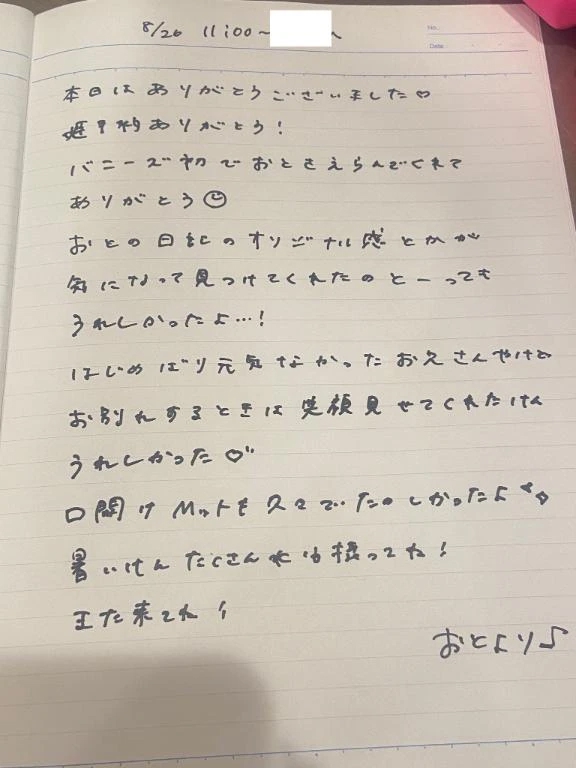 No.
Date
8/26 11:00~
本日はありがとうございました♡
遅予約ありがとう!
バニーズ初でおとさえらんでくれて
ありがとう☺
おとの日記のオリジナル感とかが
気になって見つけてくれたのとーっても
うれしかったよ…!
はじめばり元気なかったお兄さんやけど
お別れするときは笑顔見せてくれたけん
うれしかった♡
口開けMットも久々でたのしかったよ
暑いけんたくさん水分摂ってね!
また来てね!
おとより♪